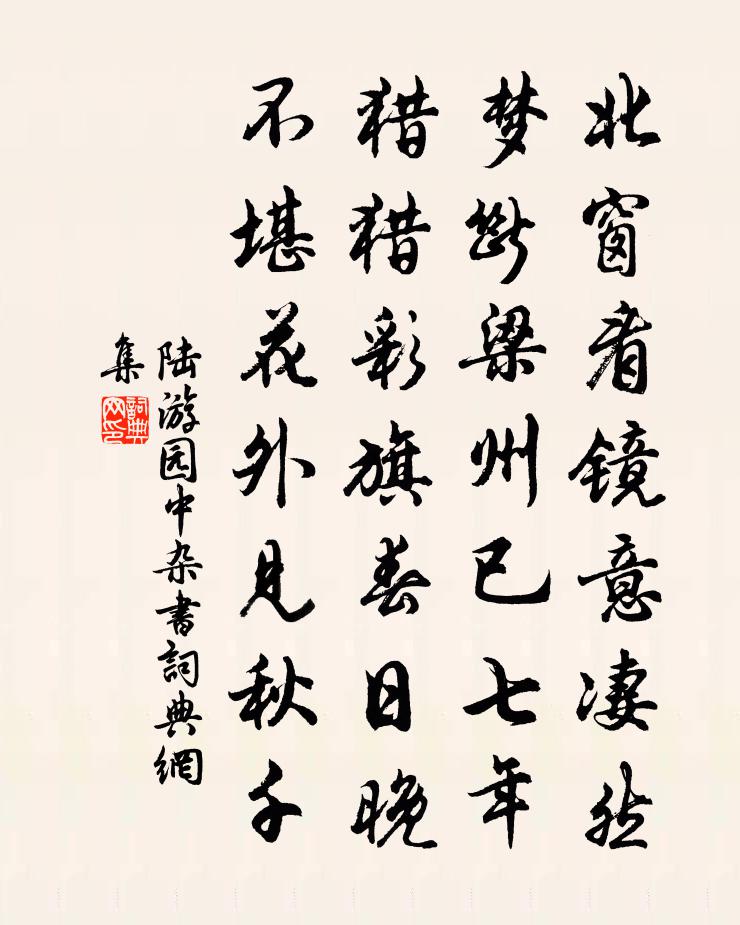 北窗看镜意凄然
梦断梁州已七年
猎猎彩旗春日晚
不堪花外见秋千
陆游园中杂書詞典網
集
詞典
网印